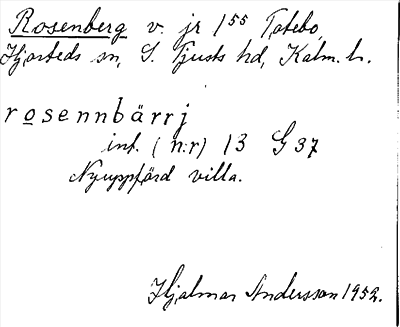 Rosenberg v. jr 1⁵⁵ Totebo,
Hjorteds sn, S. Tjusts hd, Kalm. l.
rosennbärrj
inf. (n:r) 13 G 37
Nyuppförd villa.
Hjalmar Andersson 1952.